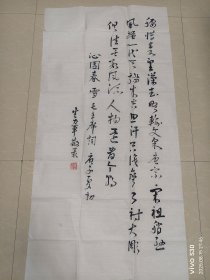 惜秦皇汉武略输文采唐宗宋祖稍逊
风骚一代天骄成吉思汗只识弯弓射大雕
俱往矣数风流人物还看今朝
沁园春雪毛主席词 庚子夏初